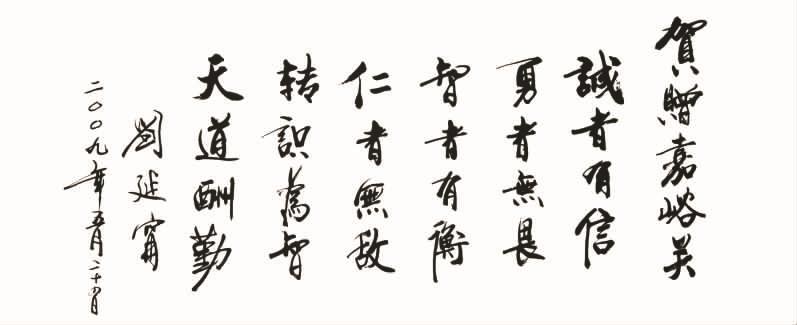 賀贈嘉峪关
誠者有信
勇者無畏
智者有衡
仁者無敌
转识為智
天道酬勤
劉延甯
二〇〇九年五月二十四日